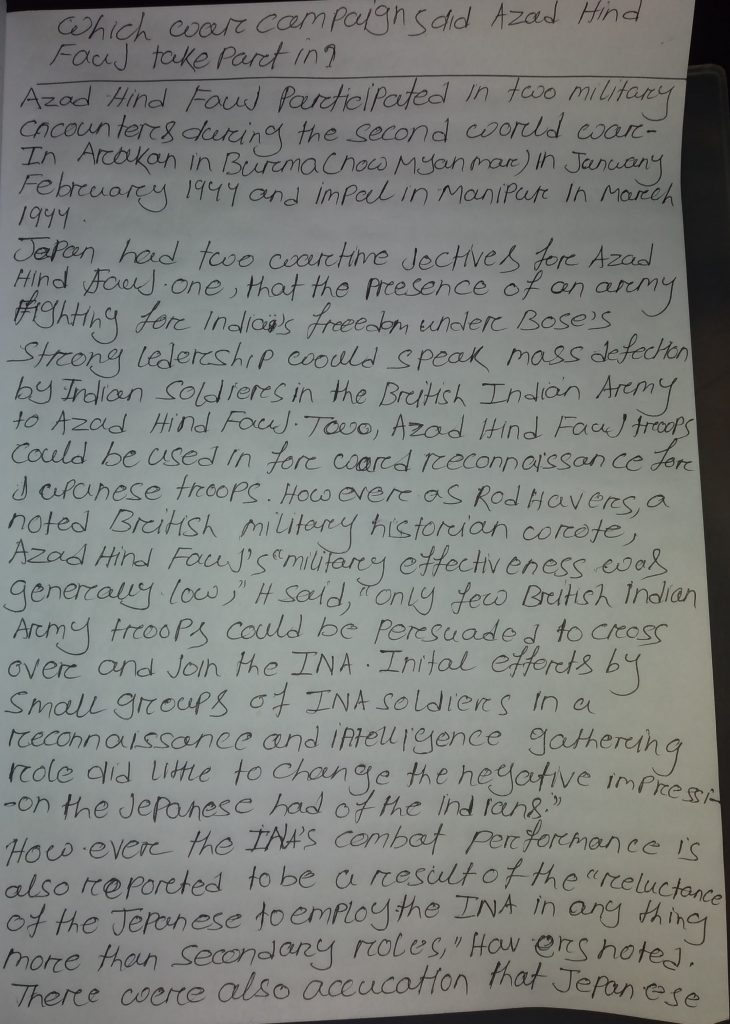 Which woar campaigns did Azad Hind
Fauj take Part in?
Azad Hind Fauj Participated in two military
encounters during the second woorld woar-
In Arakan in Burma (now Myanmar) in January
February 1944 and impal in Manipur In March
1944.
Japan had two woartime jectives for Azad
Hind Fauj. one, that the Presence of an army
Fighting for India's freeedom under Bose's
Strong ledership coould speak mass defection
by Indian Soldiers in the British Indian Army
to Azad Hind Fauj. Two, Azad Hind Fauj troops
Could be used in for coard reconnaissance for
Japanese troops. How ever as Rod Havers, a
noted British military historian corote,
Azad Hind Fauj's "military effectiveness was
generally low," H said, "only few British indian
Army troops could be Persuaded to cross
over and Join the INA. Inital efforts by
Small groups of INA soldiers in a
reconnaissance and intelligence gathering
role did little to change the negative impressi-
-on the Jepanese had of the indians."
How ever the INA's combat performance is
also reported to be a result of the "reluctance
of the Jepanese to employ the INA in any thing
more than Secondary roles," Hav ers noted.
There coere also accucation that Jepanese